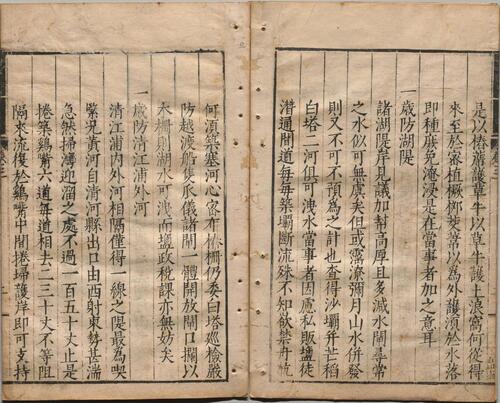 是以捲蓆護草牛以草牛護土浪窩何從得
來至於密植橛柳茭葦以為外護須於水落
即種庶免淹浸是在當事者加之意耳
一歲防湖隄
諸湖隄岸見議加幫高厚且多減水閘尋常
之水似可無虞矣但或霪潦彌月山水併發
則又不可不預為之計也查得沙壩并芒稻
白塔二河俱可洩水當事者因慮私販鹽徒
潛通間道每每築壩斷流殊不知欲禁舟航
何須築塞河心密布樁柵仍委白塔巡檢嚴
防越渡船隻瓜儀諸閘一體開放閘口攔以
木柵則湖水可洩而鹽政稅課亦無妨矣
一歲防清江浦外河
清江浦內外河相隔僅得一線之隄最為喫
緊況黃河自清河縣出口由西射東勢甚湍
急然掃灣迎溜之處不過一百五十丈止是
捲築鷄嘴六道每道相去二三十丈不等阻
隔來流復於鷄嘴中間捲埽護岸即可支持